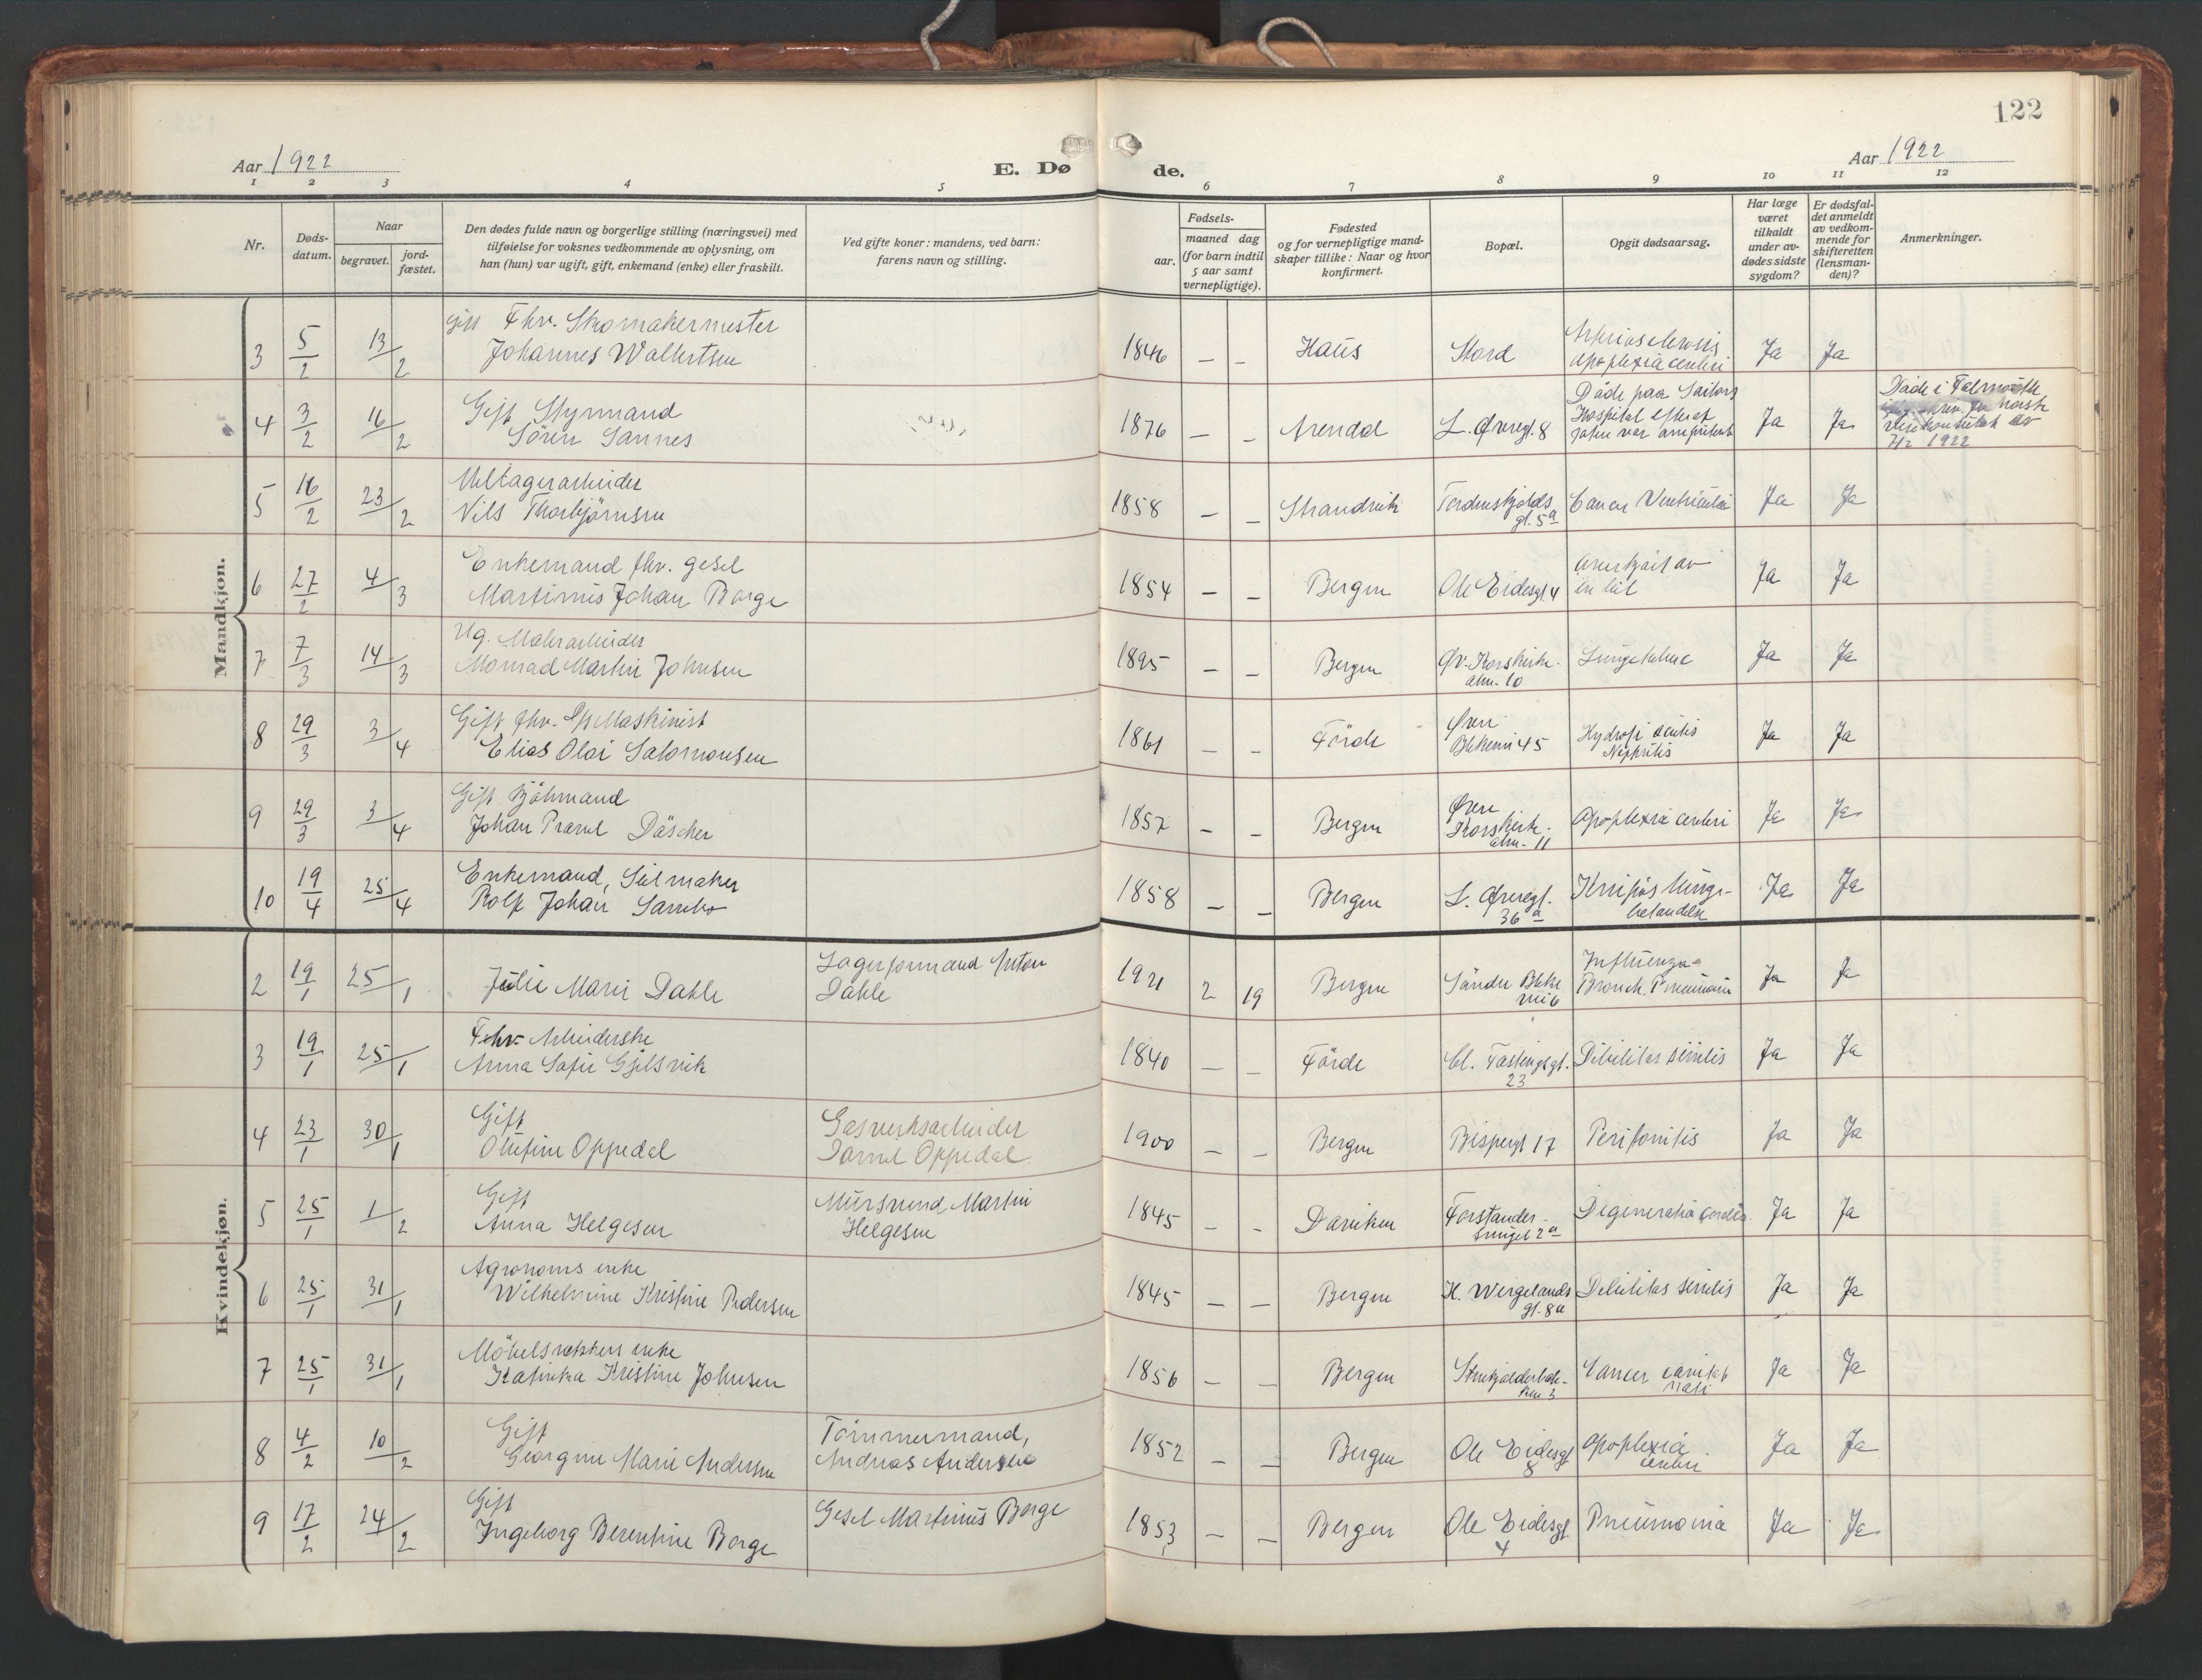 122
Aar 1922
E. Dø
de.
Aar 1922
1 2 3 4 5 6 7 8 9 10 11 12
Nr.
Døds-
datum.
Naar
begravet.
jord-
fæstet.
Den dødes fulde navn og borgerlige stilling (næringsvei) med
tilføielse for voksnes vedkommende av oplysning, om
han (hun) var ugift, gift, enkemand (enke) eller fraskilt.
Ved gifte koner: mandens, ved barn:
farens navn og stilling.
Fødsels-
aar.
maaned dag
(for barn indtil
5 aar samt
vernepligtige).
Fødested
og for vernepligtige mand-
skaper tillike: Naar og hvor
konfirmert.
Bopæl.
Opgit dødsaarsag.
Har læge
været
tilkaldt
under av-
dødes sidste
sygdom?
Er dødsfal-
det anmeldt
av vedkom-
mende for
skifteretten
(lensman-
den)?
Anmerkninger.
Mandkjøn.
3 5/2 13/2 Gift Fhv. Skomakermester
Johannes Walbertsen
1846 – – Haus Stord
apoplexia cerebri Ja Ja
4 3/2 16/2 Gift Styrmand
Sören Sannes
1876 – – Arendal L. Øvregt. 8
Døde paa Sailors
Hospital efterat
foten var amputert Ja Ja
Døde i Falmouth
norsk
visekonsulat av
7/2 1922
5 16/2 23/2
Nils Thorbjörnsen
1858 – – Strandvik Tordenskjolds
gt. 5a
Cancer Ventriculi Ja Ja
6 27/2 4/3 Enkemand fhv. gesel
Martinus Johan Borge
1854 – – Bergen Ole Eidesgt. 4
overkjørt av
en bil Ja Ja
7 7/3 14/3 Ug. Malerarbeider
Monrad Martin Johnsen
1895 – – Bergen Øv. Korskirke-
alm. 10
Lungetuberc Ja Ja
8 29/3 3/4 Gift fhv. D/s Maskinist
Elias Olai Salomonsen
1861 – – Förde Øvre
Blekevei 45
Nephritis Ja Ja
9 29/3 3/4 Gift Sjömand
Johan Däscher
1857 – – Bergen Øvre
Korskirke-
alm. 11
Apoplexia cerebri Ja Ja
10 19/4 25/4 Enkemand, Seilmaker
Rolf Johan
1858 – – Bergen L. Øvregt.
36a
Krupøs lunge-
betændelse Ja Ja
Kvindekjøn.
2 19/1 25/1 Julie Marie Dahle
Lagerformand Anton
Dahle
1921 2 19 Bergen Söndre Bleke
vei 6
Influenza
Bronch. Pneumoni Ja Ja
3 19/1 25/1 Fhv. Arbeiderske
Anna Sofie Gjelsvik
1840 – – Förde Cl. Fastingsgt.
23
Debilitas senilis Ja Ja
4 23/1 30/1 Gift
Olufine Oppedal
Gasverksarbeider
Daniel Oppedal
1900 – – Bergen Bispengt 17 Peritonitis Ja Ja
5 25/1 1/2 Gift
Anna Helgesen
Mursvend Martin
Helgesen
1845 – – Daviken Forstander-
smuget 2a
Degeneratio cordis Ja Ja
6 25/1 31/1 Agronoms enke
Wilhelmine Kristine Pedersen
1845 – – Bergen H. Wergelands
gt. 8a
Debilitas senilis Ja Ja
7 25/1 31/1 Möbelsnekkers enke
Katinka Kristine Johnsen
1856 – – Bergen Steinkjælderbak-
ken 3
Cancer
nasi Ja Ja
8 4/2 10/2 Gift
Georgine Marie Andersen
Tömmermand,
Andreas Andersen
1852 – – Bergen Ole Eidesgt
8
Apoplexia
cerebri Ja Ja
9 17/2 24/2 Gift
Ingeborg Berentine Borge
Gesel Martinus Borge
1853 – – Bergen Ole Eidesgt
4
Pneumonia Ja Ja